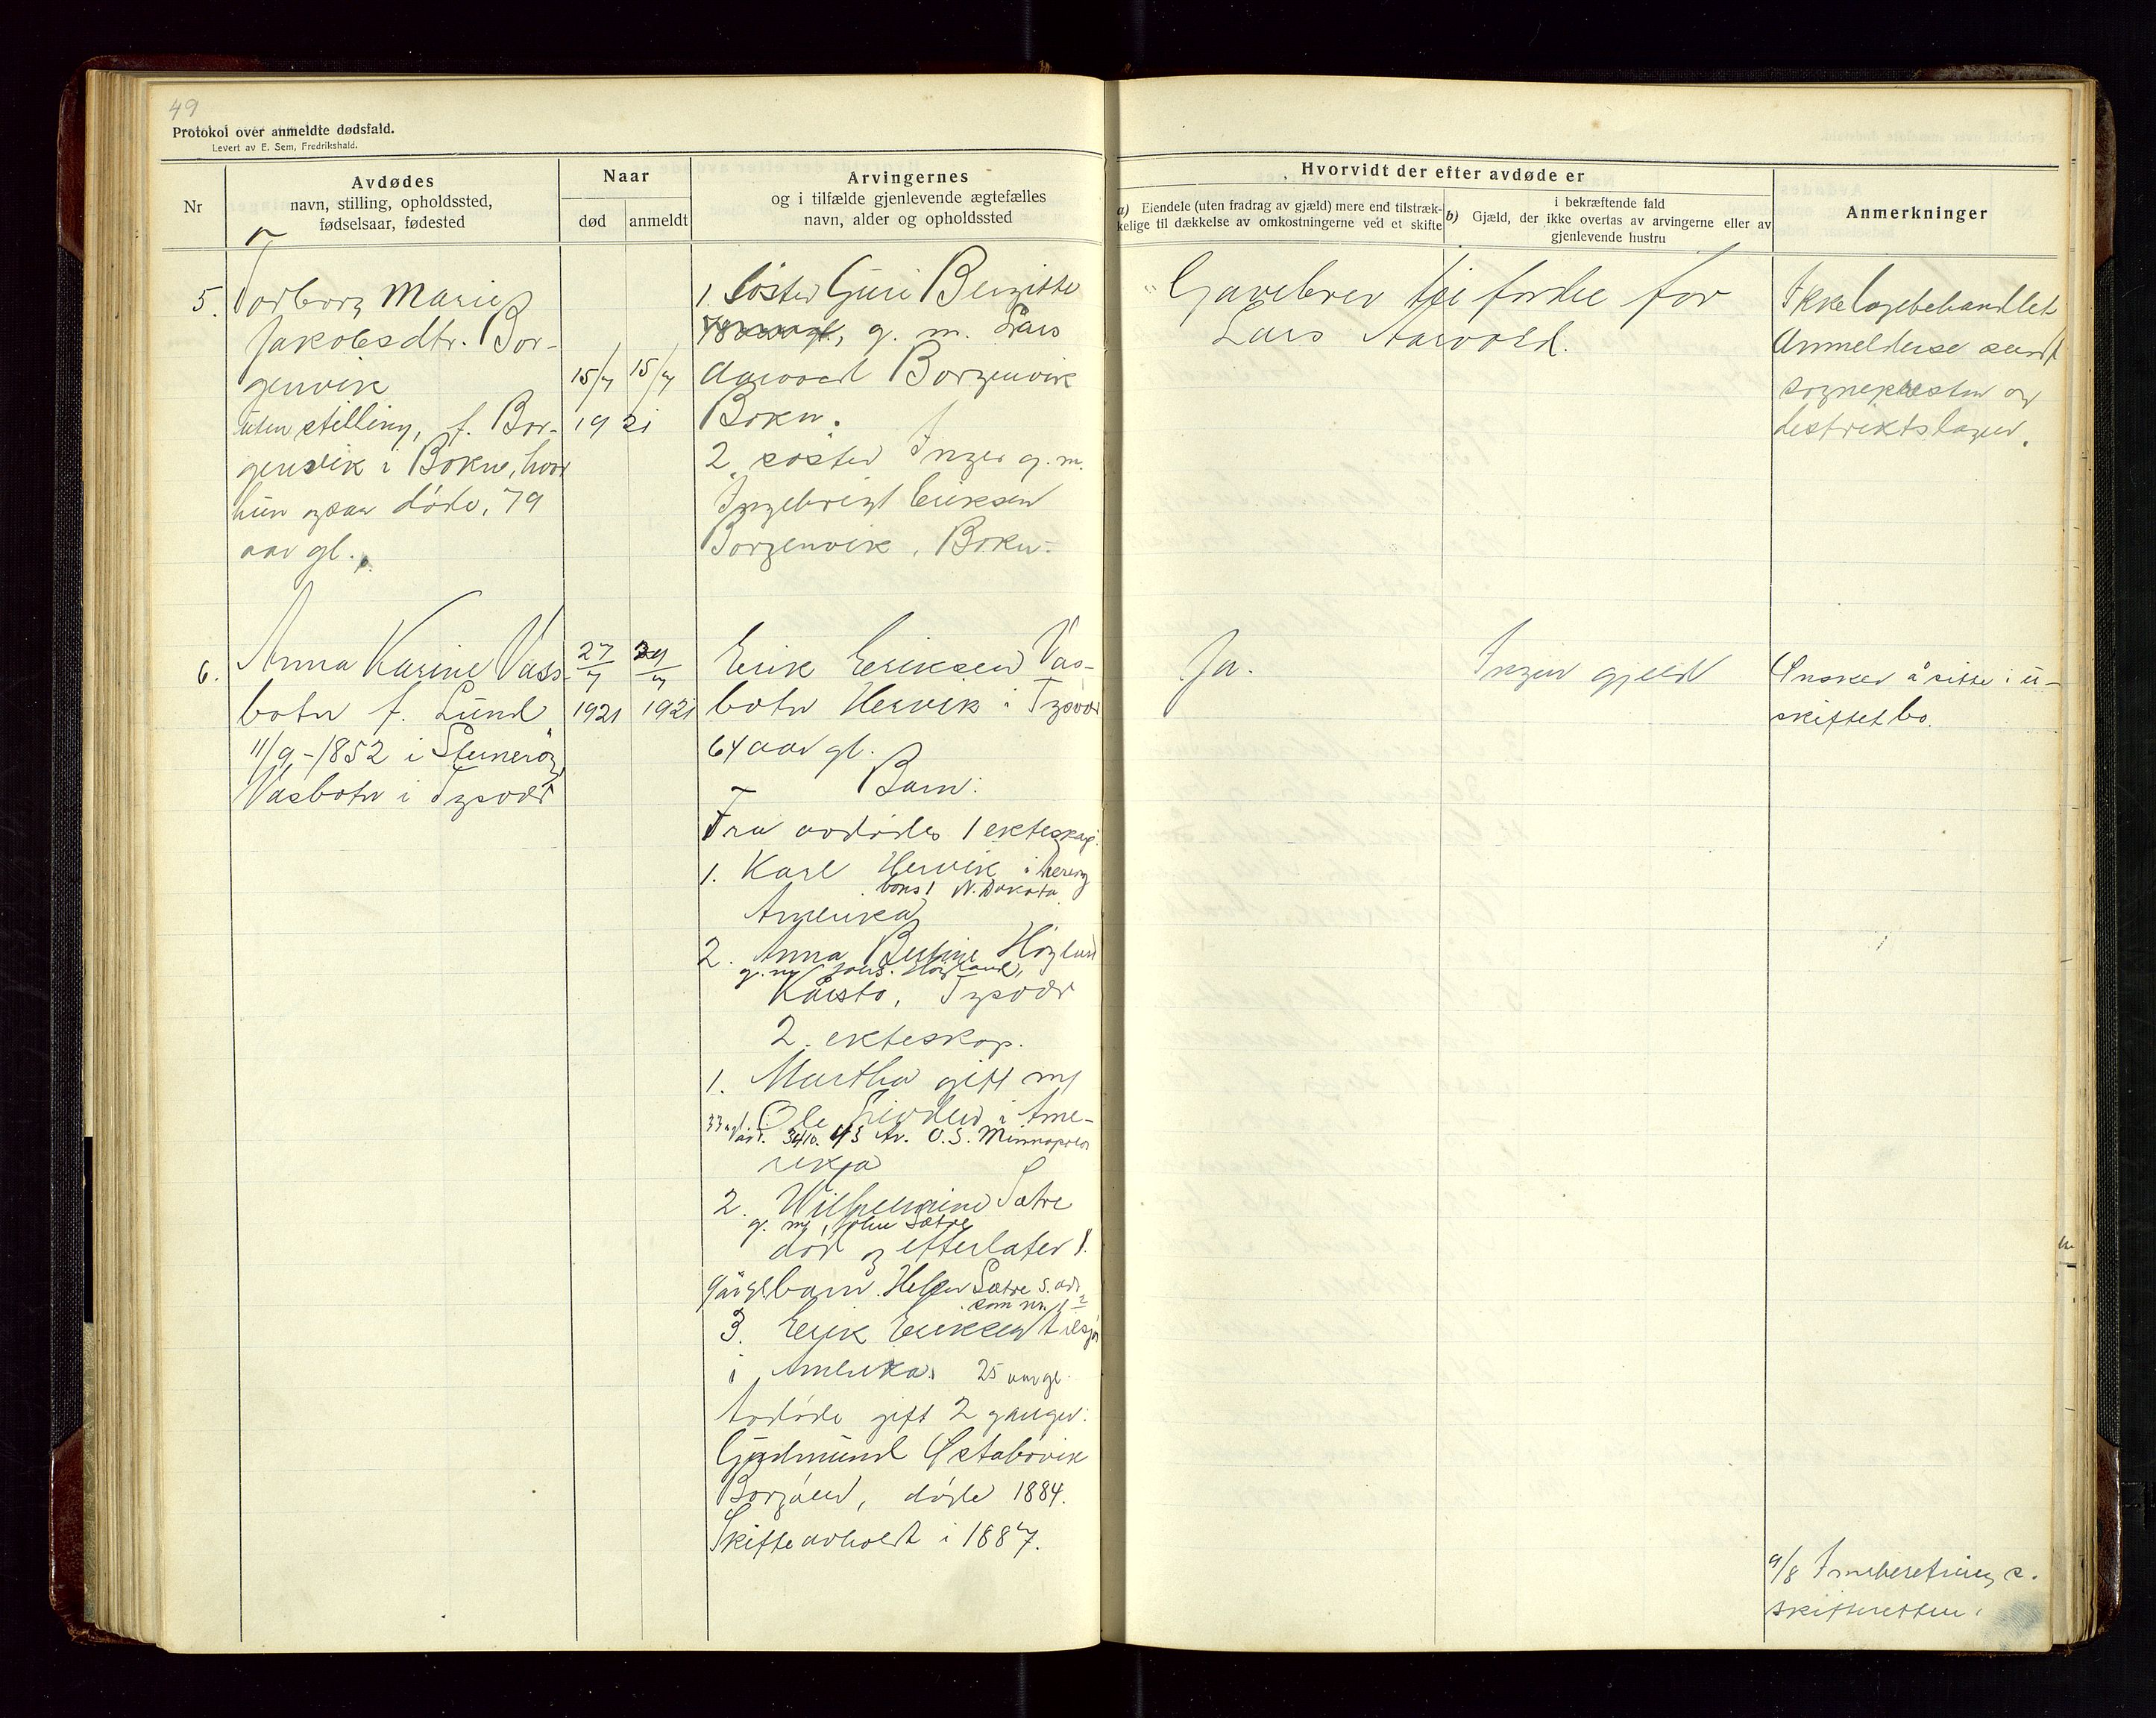 49
Protokol over anmeldte dødsfald.
Levert av E. Sem, Fredrikshald.
Nr
Avdødes
navn, stilling, opholdssted,
fødselsaar, fødested
Naar
død
anmeldt
Arvingernes
og i tilfælde gjenlevende ægtefælles
navn, alder og opholdssted
Hvorvidt der efter avdøde er
a) Eiendele (uten fradrag av gjæld) mere end tilstræk-
kelige til dækkelse av omkostningerne ved et skifte
i bekræftende fald
b) Gjæld, der ikke overtas av arvingerne eller av
gjenlevende hustru
Anmerkninger
5.
Torborg Marie
Jakobsdtr. Bor-
genvik
uten stilling, f. Bor-
genvik i Bokn, hvor
hun ogsaa døde, 79
aar gl.
15/7 15/7
1921
1. Søster Guri Bergitte
g. m. Lars
Aarvold Borgenvik
Bokn.
2. søster Inger g. m.
Ingebrigt Eriksen
Borgenvik, Bokn.
Gavebrev til fordel for
Lars Aarvold.
Ikke lægebehandlet
Anmeldelse sendt
sognepresten og
distriktslægen.
6.
Anna Karine Vass-
botn f. Lund
11/9-1852 i
Vasbotn i Tysvær
27/7
1921
/7
1921
Erik Eriksen Vas-
botn Hervik i Tysvær
64 aar gl.
Barn:
Fra avdødes 1 ekteskap.
1. Karl Hervik i
N. Dakota
Amerika
2. Anna Bertine Høgland
g. m/ Johs. Høgland,
Kårstø, Tysvær
2. ekteskap.
1. Martha gift m/
33 a gl. Ole i Ame-
Adr. 3410. 43 Av. O.S. Minnapolis
rika
2. Wilhelmine Sætre
g. m/ John Sætre
død og efterlater 1
9 år gl barn. Helen Sætre s. adr
som nr. 1
3. Erik Eriksen tilsjøs
i Amerika. 25 aar gl.
Avdøde gift 2 ganger:
Gudmund Østabøvik
Borgøen, døde 1884.
Skifte avholdt i 1887.
Ja.
Ingen gjeld
Ønsker å sitte i u-
skiftet bo.
9/8 Innberetning s.
skifteretten.